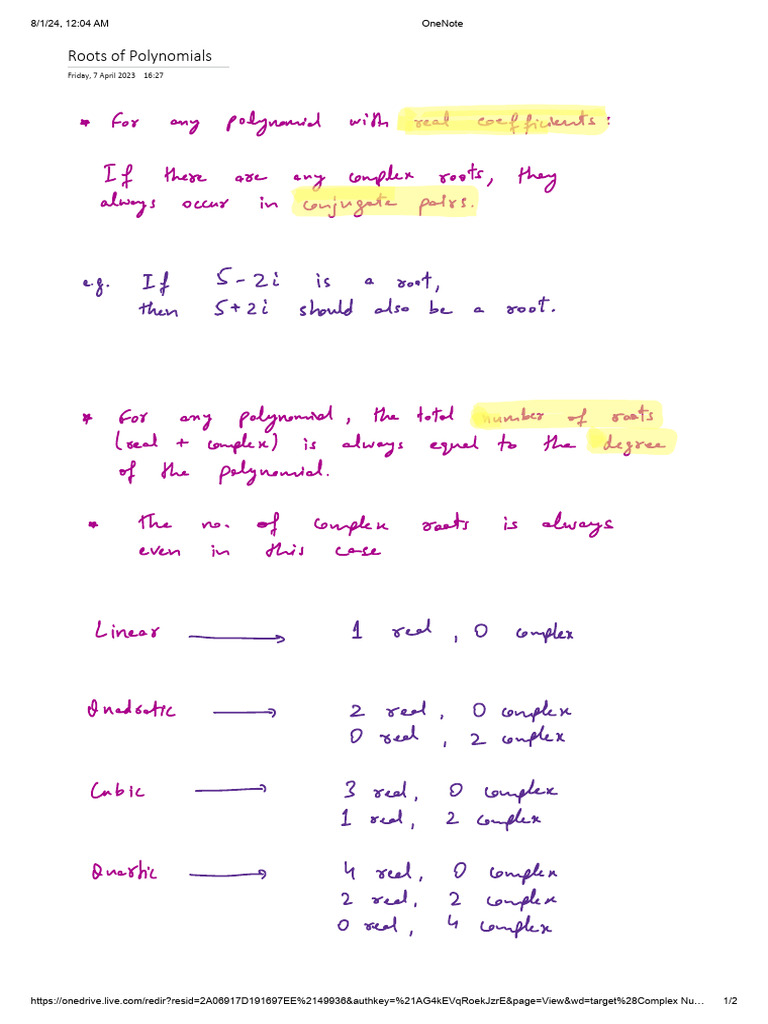 8/1/24, 12:04 AM OneNote
Roots of Polynomials
Friday, 7 April 2023 16:27
* For any polynomial with real coefficients:
If there are any complex roots, they
always occur in conjugate pairs.
e.g. If 5-2i is a root,
then 5+2i should also be a root.
* For any polynomial, the total number of roots
(real + complex) is always equal to the degree
of the polynomial.
* The no. of complex roots is always
even in this case
Linear → 1 real, 0 complex
Quadratic → 2 real, 0 complex
0 real, 2 complex
Cubic → 3 real, 0 complex
1 real, 2 complex
Quartic → 4 real, 0 complex
2 real, 2 complex
0 real, 4 complex
https://onedrive.live.com/redir?resid=2A06917D191697EE%2149936&authkey=%21AG4kEVqRoekJzrE&page=View&wd=target%28Complex Nu… 1/2